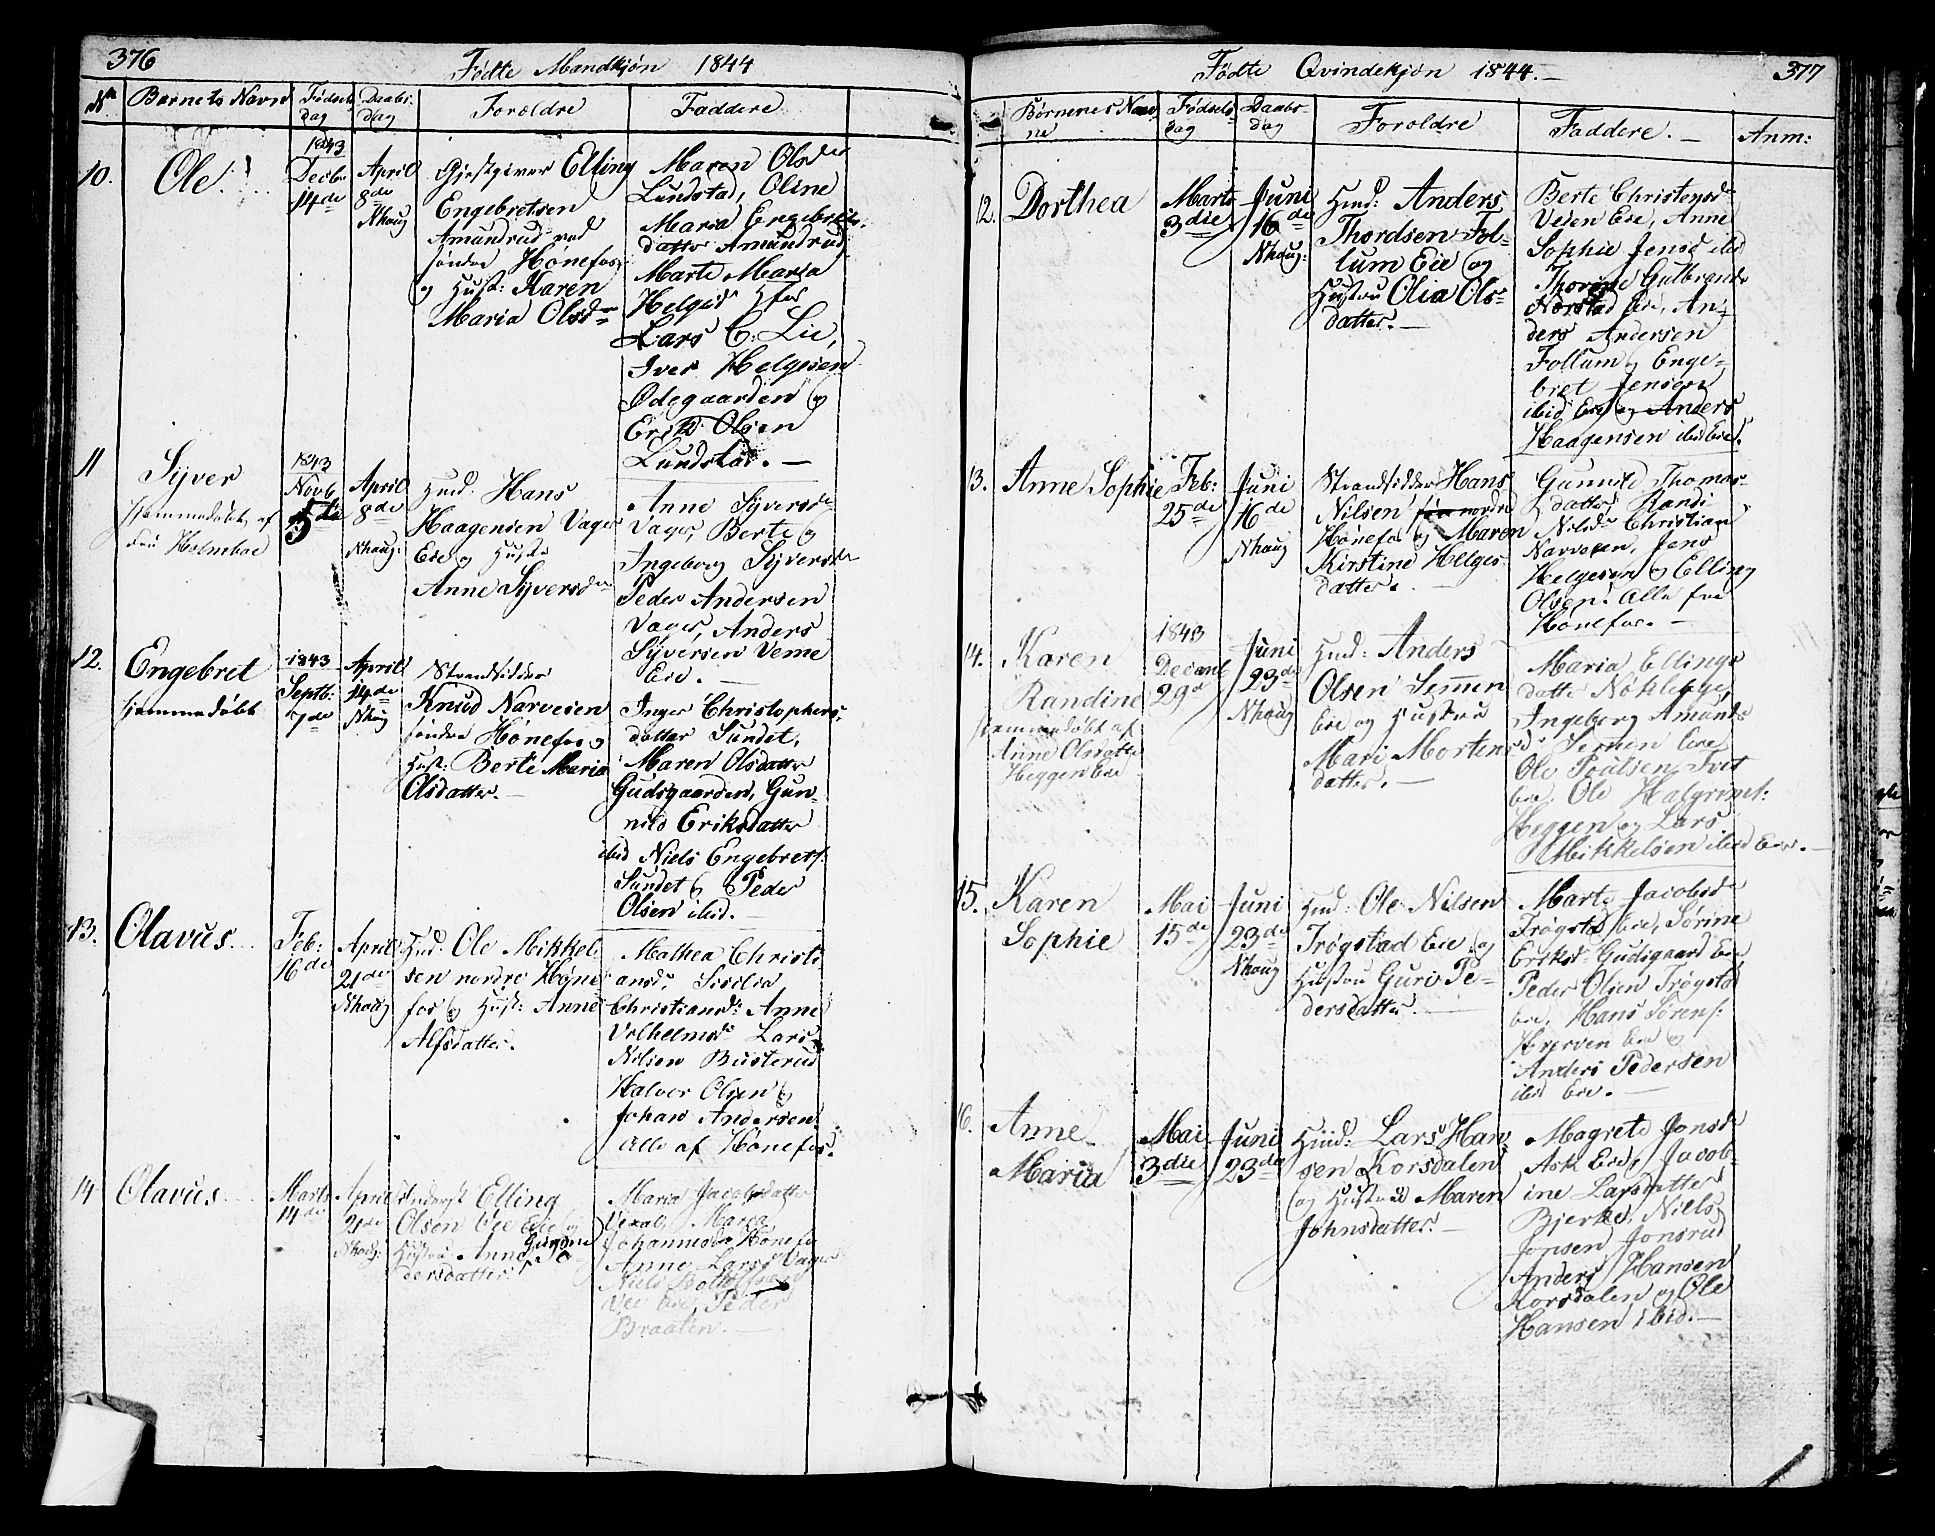 376
Fødte Mandkjøn 1844
No Barnets Navn Fødsels dag Daabs dag Forældre Faddere
10. Ole.
1843
Decbr
14de
April
8de
Nhoug
Gjestgiver Elling
Engebretsen
Amundrud ved
søndre Hønefos
og Hust: Karen
Maria Olsdr
Maren Olsdr
Lundstad, Oline
Maria Engebrets-
datter Amundrud
Marte Maria
Helgesd
Lars C. Lie,
Iver Helgesen
Ødegaarden og
Erik Olsen
Lundstad. —
11 Syver
hjemmedøbt af
Holmboe
1843
Novb
5de
April
8de
Nhoug:
Huusm: Hans
Haagensen Vager
Eie og Hustr
Anne Syversdr
Anne Syversdr
Vager, Berte og
Ingeborg Syversdr
Peder Andersen
Vager, Anders
Syversen Veme
Eie. —
12. Engebret
hjemmedøbt
1843
Septb:
7de
April
14de
Nhoug
Strandsidder
Knud Narvesen
søndre Hønefos og
Hust: Berte Maria
Olsdatter. —
Inger Christophers-
datter Sundet,
Maren Olsdatter
Gudsgaarden, Gun-
nild Eriksdatter
ibid Niels Engebrets:
Sundet og Peder
Olsen ibid. —
13. Olavus.
Feb:
16de
April
21de
Nhoug
Huusm: Ole Mikkel-
sen nordre Høne-
fos og Hust: Anne
Alfsdatter.
Mathea Christi-
ansd, Sicilia
Christiansd: Anne
Vilhelmsdr Lars
Nilsen Busterud
Halvor Olsen og
Johan Andersen.
Alle af Hønefos.
14 Olavus.
Marts
14de
April
21de
Nhoug:
Elling
Olsen Vee Eie og
Hustru Anne Gurine Pe-
dersdatter.
Maria Jacobsdatter
Maria
Johannesdr Hønefos
Anne Larsd Vager
Niels
Vee Eie, Peder
Braaten. —
377
Fødte Qvindekjøn 1844. —
Børnenes Nav-
ne Fødsels dag Daabs- dag Forældre Faddere. — Anm:
12. Dorthea
Marts
3die
Juni
16de
Nhoug:
Huusm: Anders
Thordsen Fol-
lum Eie og
Hustru Olia Ols-
datter. —
Berte Christensd
Veien Eie, Anne
Sophie Jensd ibid
Thorine Gulbrandsd
Norstad Eie, An-
ders Andersen
Follum og Enge-
bret Jensen
ibid Eie og Anders
Haagensen ibid Eie.
13. Anne Sophie
Feb:
25de
Juni
16de
Nhoug
Strandsidder Hans
Nilsen nordre
Hønefos og Maren
Kirstine Helges-
datter. —
Gunnild Thomas-
datter, Randi
Nilsdr Christian
Narvesen, Jens
Helgesen og Elling
Olsen. Alle fra
Hønefos. —
14. Karen
Randine
hjemmedøbt af
Anne Olsdatter
Heggen Eie
1843
Decemb
29de
Juni
23de
Nhoug
Huusm: Anders
Olsen Semmen
Eie og Hustru
Mari Mortens-
datter. —
Maria Ellings-
datter Nøkleby,
Ingeborg Amunds-
dr Semen Eie
Ole Poulsen Tvet
Eie. Ole Halgrims:
Heggen og Lars
Mikkelsen ibid Eie. —
15. Karen
Sophie
Mai
15de
Juni
23de
Nhoug
Huusm: Ole Nilsen
Trøgstad Eie og
Hustru Guri Pe-
dersdatter. —
Marte Jacobsd
Trøgstad Eie, Sørine
Eriksd: Gudsgaard Eie
Peder Olsen Trøgstad
Eie. Hans Sørens:
Hverven Eie og
Anders Pedersen
ibid Eie. —
16. Anne
Maria
Mai
3die
Juni
23de
Huusm: Lars Han-
sen Korsdalen
og Hustrue Maren
Johnsdatter. —
Magrete Jonsd
Ask Eie, Jacob-
ine Larsdatter
Bjerke, Niels
Jonsen Jonsrud
Anders Hansen
Korsdalen og Ole
Hansen ibid. —